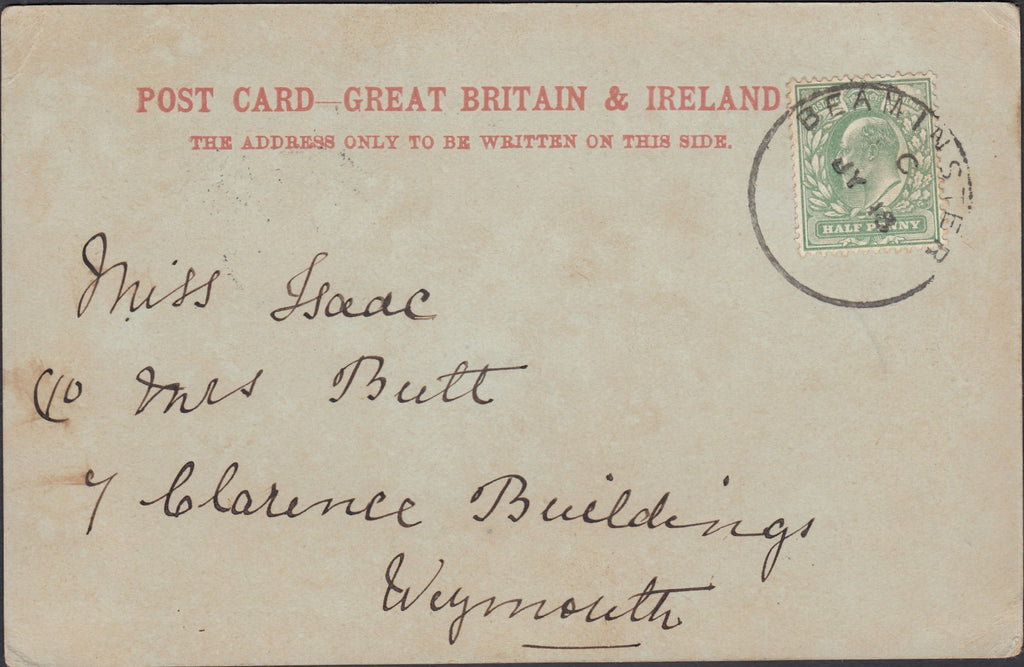 POST CARD—GREAT BRITAIN & IRELAND
THE ADDRESS ONLY TO BE WRITTEN ON THIS SIDE.
BEAMINSTER
C
JY 18
HALF PENNY
Miss Isaac
c/o Mrs Butt
7 Clarence Buildings
Weymouth